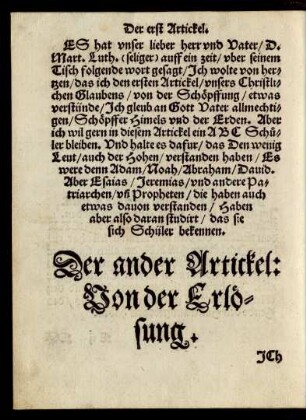 Der erst Artickel.
ES hat vnser lieber herr vnd Vater/ D.
Mart. Luth. (seliger) auff ein zeit/ vber seinem
Tisch folgende wort gesagt/ Jch wolte von her-
tzen/ das ich den ersten Artickel/ vnsers Christli-
chen Glaubens/ von der Schöpffung/ etwas
verstünde/ Jch gleub an Gott Vater allmechti-
gen/ Schöpffer Himels vnd der Erden. Aber
ich wil gern in diesem Artickel ein A B C Schü-
ler bleiben. Vnd halte es dafur/ das Den wenig
Leut/ auch der Hohen/ verstanden haben/ Es
were denn Adam/ Noah/ Abraham/ Dauid.
Aber Esaias/ Jeremias/ vnd andere Pa-
triarchen/ vñ Propheten/ die haben auch
etwas dauon verstanden/ Haben
aber also daran studirt/ das sie
sich Schüler bekennen.
Der ander Artickel:
Von der Erlö-
sung.
JCh